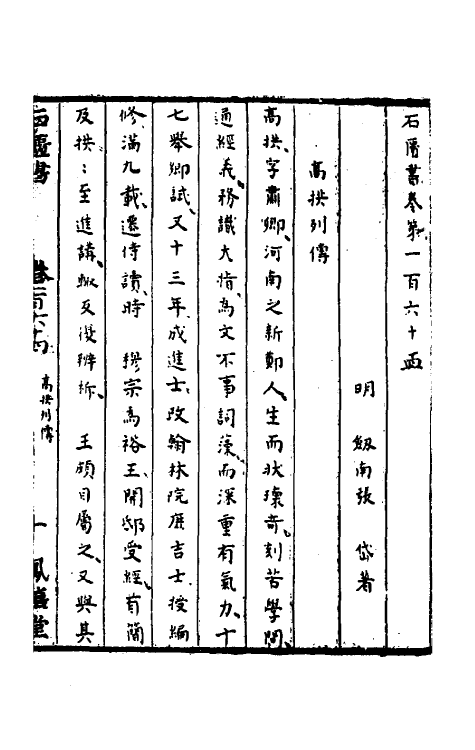 石匱書卷第一百六十四
明 劔南張 岱著
高拱列傳
高拱、字肅卿、河南之新鄭人、生而狀瓌奇、刻苦學問、
通經義、務識大指、爲文不事詞藻、而深重有氣力、十
七舉鄉試、又十三年、成進士、改翰林院庶吉士、授編
修、滿九載、遷侍讀、時 穆宗爲裕王、開邸受經、有簡
及拱：至進講、輙反復辨析、 王頎目屬之、又與其
石匱書 卷一百六十四 高拱列傳 一 鳳嬉堂